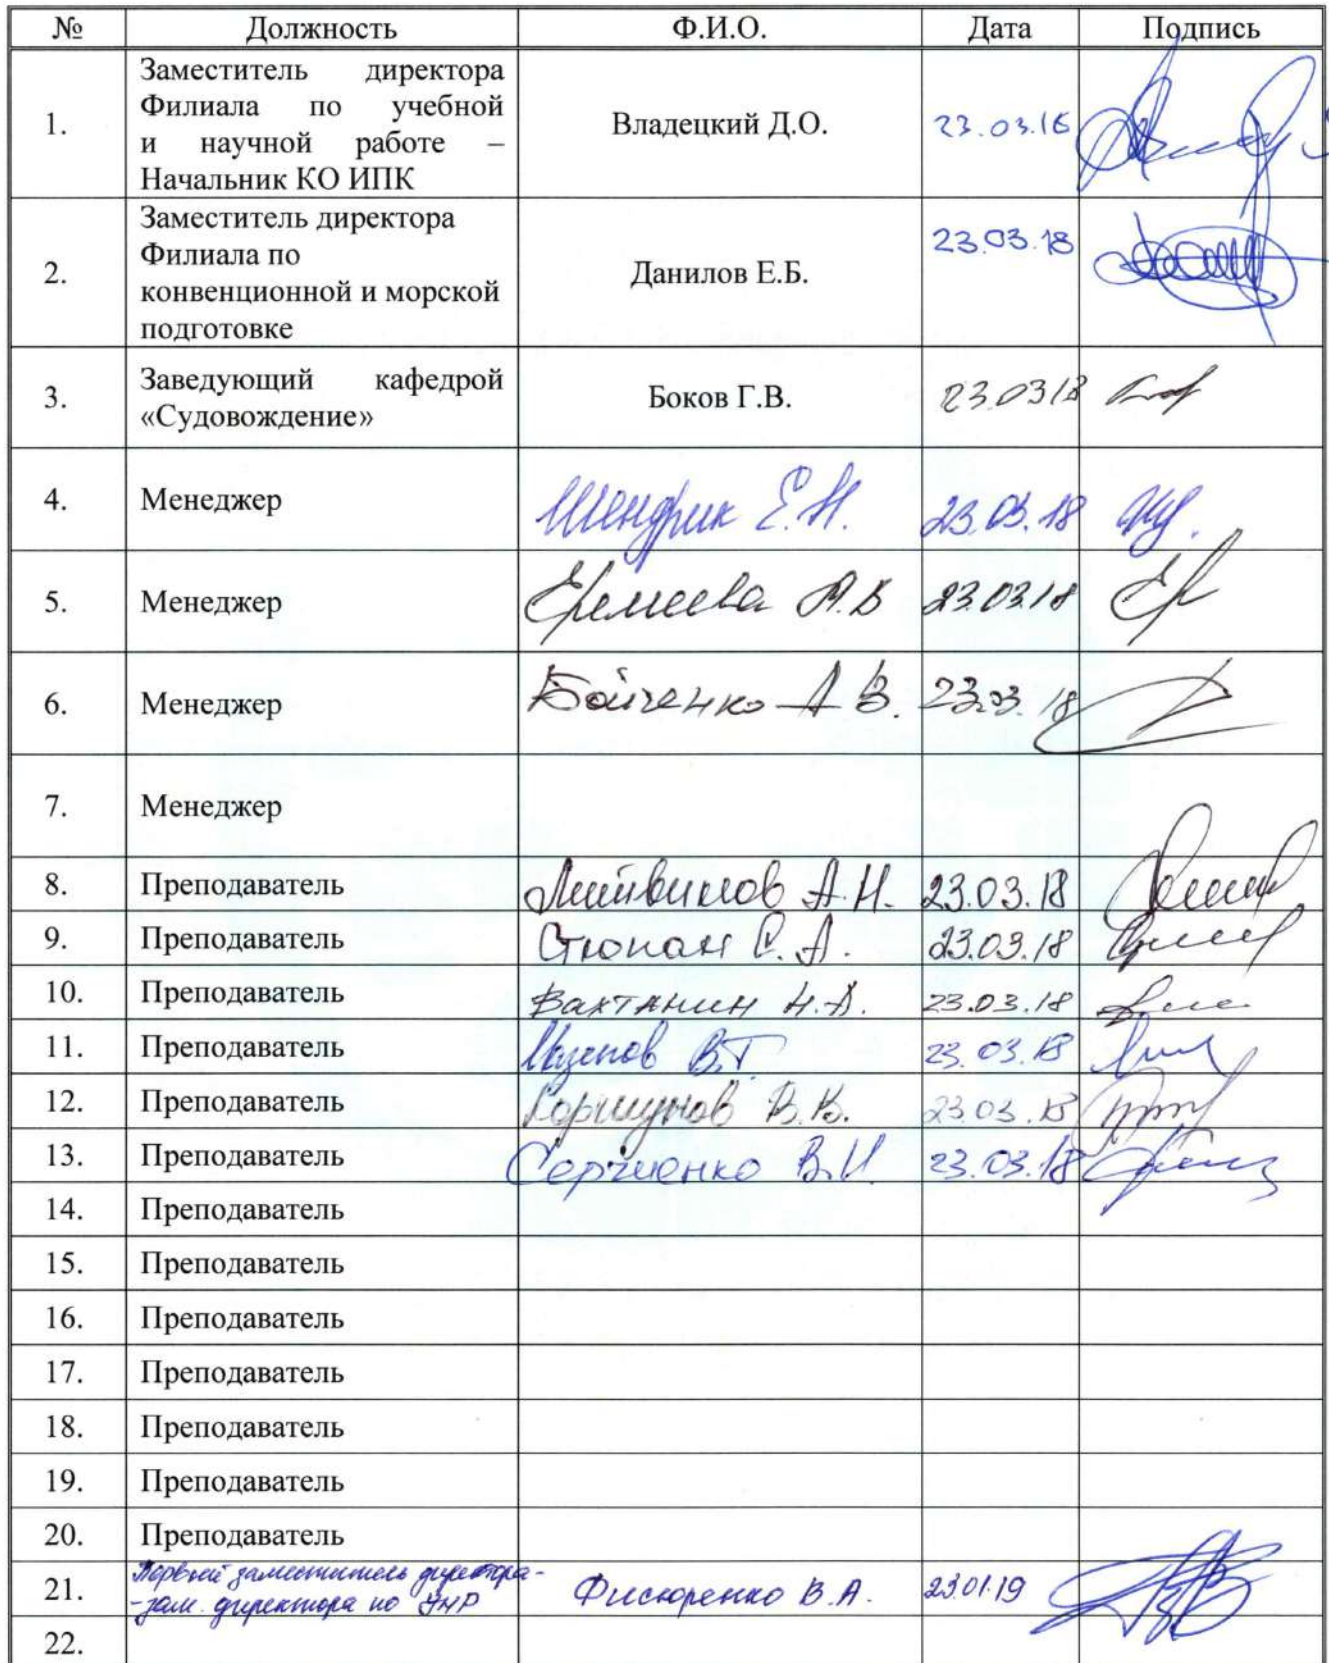 № Должность Ф.И.О. Дата Подпись
Заместитель директора
Филиала по учебной
1. и научной работе – Владецкий Д.О. 23.03.18
Начальник КО ИПК
Заместитель директора
Филиала по
2. конвенционной и морской Данилов Е.Б. 23.03.18
подготовке
3. Заведующий кафедрой Боков Г.В. 23.03.18
«Судовождение»
4. Менеджер Шендрик Е.Н. 23.03.18
5. Менеджер Еремеева А.В 23.03.18
6. Менеджер Бойченко А В. 23.03.18
7. Менеджер
8. Преподаватель Литвинов А.Н. 23.03.18
9. Преподаватель Стюпан С.А. 23.03.18
10. Преподаватель Вахтанин Н.А. 23.03.18
11. Преподаватель В.Г. 23.03.18
12. Преподаватель Коршунов В.В. 23.03.18
13. Преподаватель Сергиенко В.И. 23.03.18
14. Преподаватель
15. Преподаватель
16. Преподаватель
17. Преподаватель
18. Преподаватель
19. Преподаватель
20. Преподаватель
Первый заместитель директора-
21. -зам. директора по УНР Фисюренко В.А. 23.01.19
22.